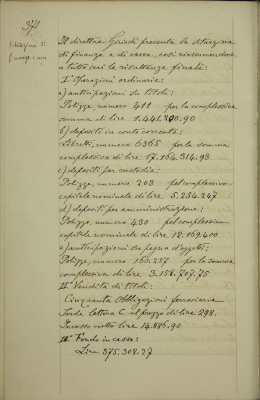 371
Situazione di
finanza e cassa
Il direttore Grisdi presenta la situazione
di finanza e di cassa, così riassumendone
a tutto ieri le risultanze finali:
I° Operazioni ordinarie:
a) anticipazioni su titoli:
Polizze, numero 411 per la complessiva
somma di lire 1.441.200.90
b) depositi in conto corrente:
Libretti, numero 6365 per la somma
complessiva di lire 17.164.314.93
c) depositi per custodia:
Polizze, numero 203 pel complessivo
capitale nominale di lire 5.234.247
d) depositi per amministrazione:
Polizze, numero 430 pel complessivo
capitale nominale di lire 12.169.400
e) anticipazioni su pegno d'oggetti:
Polizze, numero 160.257 per la somma
complessiva di lire 3.158.707.75
II° Vendita di titoli:
Cinquanta Obbligazioni ferroviarie
Sarde lettera C al prezzo di lire 298.
Incasso netto lire 14.886.90
III° Fondo in cassa:
Lire 375.308.27